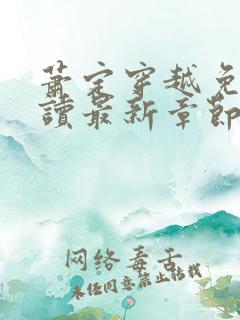 萧家穿越免
读最新章节
网络毒舌
未经同意禁止转载